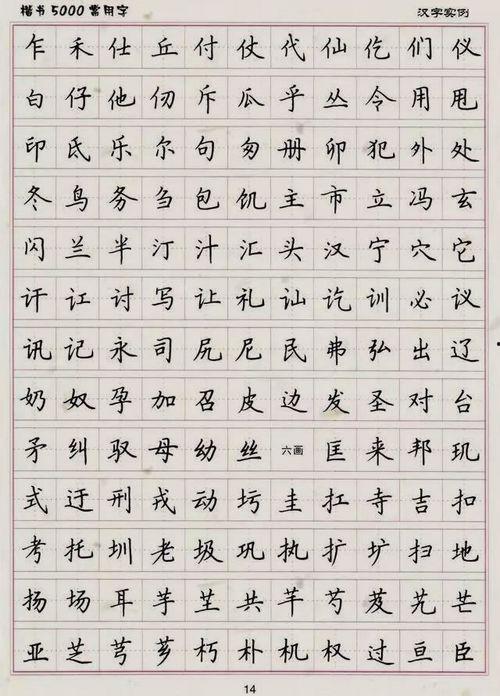 楷书5000常用字 汉字实例
乍 禾 仕 丘 付 仗 代 仙 仡 们 仪
白 仔 他 仞 斥 瓜 乎 丛 令 用 甩
印 氐 乐 尔 句 匆 册 卯 犯 外 处
冬 鸟 务 刍 包 饥 主 市 立 冯 玄
闪 兰 半 汀 汁 汇 头 汉 宁 穴 它
讦 讧 讨 写 让 礼 讪 讫 训 必 议
讯 记 永 司 尻 尼 民 弗 弘 出 辽
奶 奴 孕 加 召 皮 边 发 圣 对 台
矛 纠 驭 母 幼 丝 六画 匡 耒 邦 玑
式 迂 刑 戎 动 圬 圭 扛 寺 吉 扣
考 托 圳 老 圾 巩 执 扩 圹 扫 地
扬 场 耳 芋 共 芊 芍 芨 芄 芒
亚 芝 芎 芗 朽 朴 机 权 过 亘 臣
14